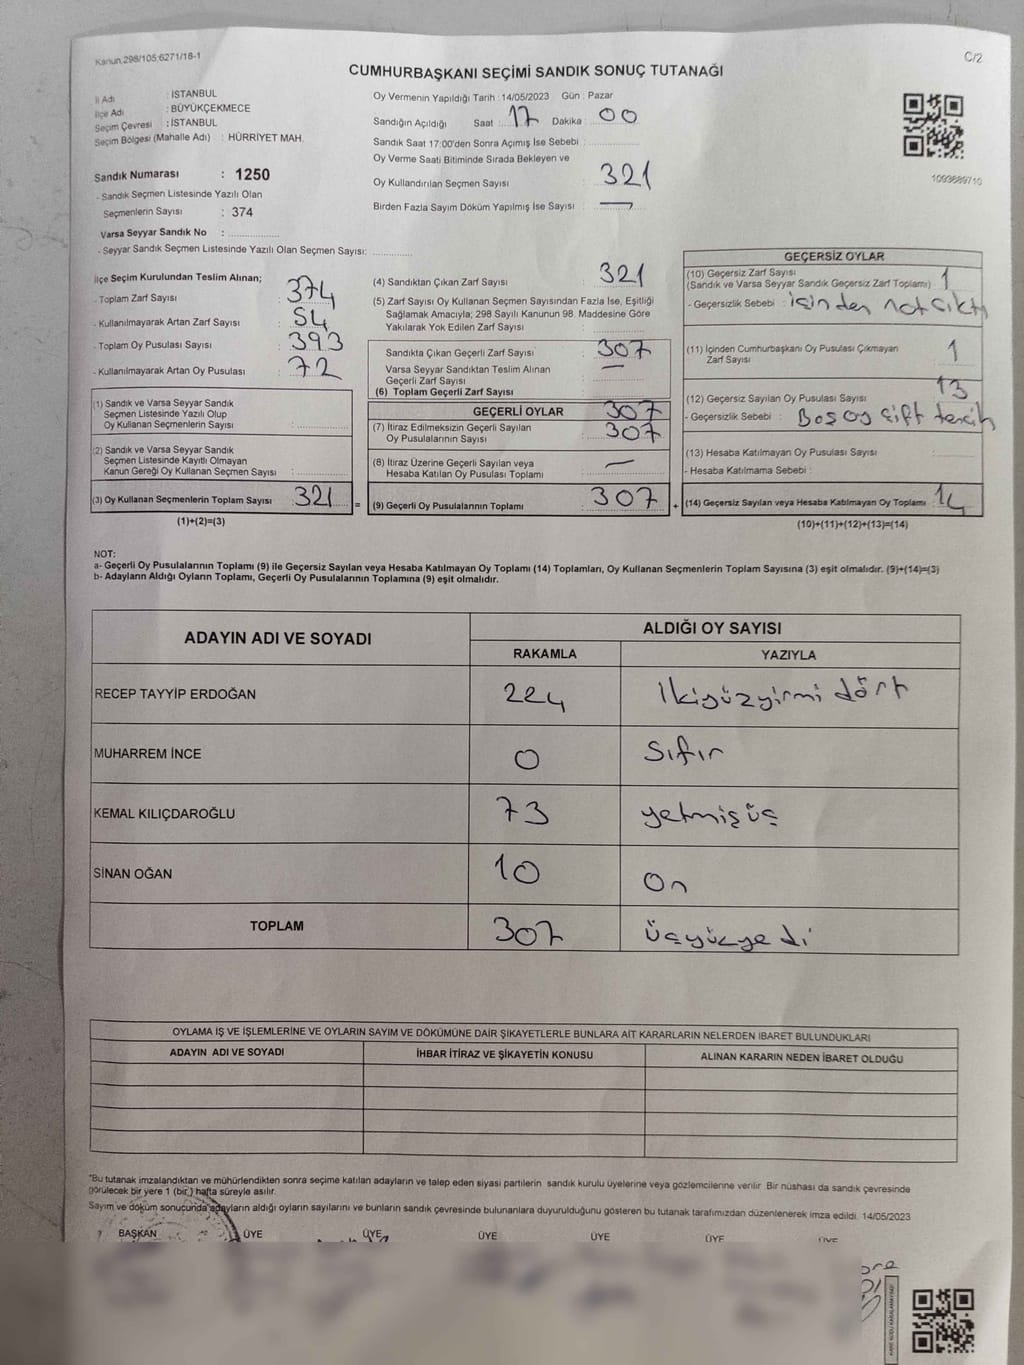 Kanun.298/105;6271/18-1
C/2
CUMHURBAŞKANI SEÇİMİ SANDIK SONUÇ TUTANAĞI
İl Adı : İSTANBUL
İlçe Adı : BÜYÜKÇEKMECE
Seçim Çevresi : İSTANBUL
Seçim Bölgesi (Mahalle Adı) : HÜRRİYET MAH.
Sandık Numarası : 1250
- Sandık Seçmen Listesinde Yazılı Olan
Seçmenlerin Sayısı : 374
Varsa Seyyar Sandık No :
- Seyyar Sandık Seçmen Listesinde Yazılı Olan Seçmen Sayısı:
Oy Vermenin Yapıldığı Tarih : 14/05/2023 Gün : Pazar
Sandığın Açıldığı Saat : 17 Dakika : 00
Sandık Saat 17:00'den Sonra Açımış İse Sebebi :
Oy Verme Saati Bitiminde Sırada Bekleyen ve
Oy Kullandırılan Seçmen Sayısı : 321
Birden Fazla Sayım Döküm Yapılmış İse Sayısı : —
1093689710
İlçe Seçim Kurulundan Teslim Alınan;
- Toplam Zarf Sayısı : 374
- Kullanılmayarak Artan Zarf Sayısı : 54
- Toplam Oy Pusulası Sayısı : 393
- Kullanılmayarak Artan Oy Pusulası : 72
(1) Sandık ve Varsa Seyyar Sandık
Seçmen Listesinde Yazılı Olup
Oy Kullanan Seçmenlerin Sayısı :
(2) Sandık ve Varsa Seyyar Sandık
Seçmen Listesinde Kayıtlı Olmayan
Kanun Gereği Oy Kullanan Seçmen Sayısı :
(3) Oy Kullanan Seçmenlerin Toplam Sayısı : 321 =
(1)+(2)=(3)
(4) Sandıktan Çıkan Zarf Sayısı : 321
(5) Zarf Sayısı Oy Kullanan Seçmen Sayısından Fazla İse, Eşitliği
Sağlamak Amacıyla; 298 Sayılı Kanunun 98. Maddesine Göre
Yakılarak Yok Edilen Zarf Sayısı :
Sandıkta Çıkan Geçerli Zarf Sayısı : 307
Varsa Seyyar Sandıktan Teslim Alınan —
Geçerli Zarf Sayısı :
(6) Toplam Geçerli Zarf Sayısı :
GEÇERLİ OYLAR 307
(7) İtiraz Edilmeksizin Geçerli Sayılan 307
Oy Pusulalarının Sayısı :
(8) İtiraz Üzerine Geçerli Sayılan veya —
Hesaba Katılan Oy Pusulası Toplamı :
(9) Geçerli Oy Pusulalarının Toplamı : 307 +
GEÇERSİZ OYLAR
(10) Geçersiz Zarf Sayısı
(Sandık ve Varsa Seyyar Sandık Geçersiz Zarf Toplamı) : 1
- Geçersizlik Sebebi : içinden not çıktı
(11) İçinden Cumhurbaşkanı Oy Pusulası Çıkmayan 1
Zarf Sayısı
(12) Geçersiz Sayılan Oy Pusulası Sayısı : 13
- Geçersizlik Sebebi : Boş oy çift tercih
(13) Hesaba Katılmayan Oy Pusulası Sayısı :
- Hesaba Katılmama Sebebi :
(14) Geçersiz Sayılan veya Hesaba Katılmayan Oy Toplamı : 14
(10)+(11)+(12)+(13)=(14)
NOT:
a- Geçerli Oy Pusulalarının Toplamı (9) ile Geçersiz Sayılan veya Hesaba Katılmayan Oy Toplamı (14) Toplamları, Oy Kullanan Seçmenlerin Toplam Sayısına (3) eşit olmalıdır. (9)+(14)=(3)
b- Adayların Aldığı Oyların Toplamı, Geçerli Oy Pusulalarının Toplamına (9) eşit olmalıdır.
ADAYIN ADI VE SOYADI
ALDIĞI OY SAYISI
RAKAMLA YAZIYLA
RECEP TAYYİP ERDOĞAN 224 İkiyüzyirmi dört
MUHARREM İNCE 0 Sıfır
KEMAL KILIÇDAROĞLU 73 yetmişüç
SİNAN OĞAN 10 On
TOPLAM 307 Üçyüzyedi
OYLAMA İŞ VE İŞLEMLERİNE VE OYLARIN SAYIM VE DÖKÜMÜNE DAİR ŞİKAYETLERLE BUNLARA AİT KARARLARIN NELERDEN İBARET BULUNDUKLARI
ADAYIN ADI VE SOYADI İHBAR İTİRAZ VE ŞİKAYETİN KONUSU ALINAN KARARIN NEDEN İBARET OLDUĞU
*Bu tutanak imzalandıktan ve mühürlendikten sonra seçime katılan adayların ve talep eden siyasi partilerin sandık kurulu üyelerine veya gözlemcilerine verilir. Bir nüshası da sandık çevresinde
görülecek bir yere 1 (bir ) hafta süreyle asılır.
Sayım ve döküm sonucunda adayların aldığı oyların sayılarını ve bunların sandık çevresinde bulunanlara duyurulduğunu gösteren bu tutanak tarafımızdan düzenlenerek imza edildi. 14/05/2023
BAŞKAN ÜYE ÜYE ÜYE ÜYE ÜYE ÜYE